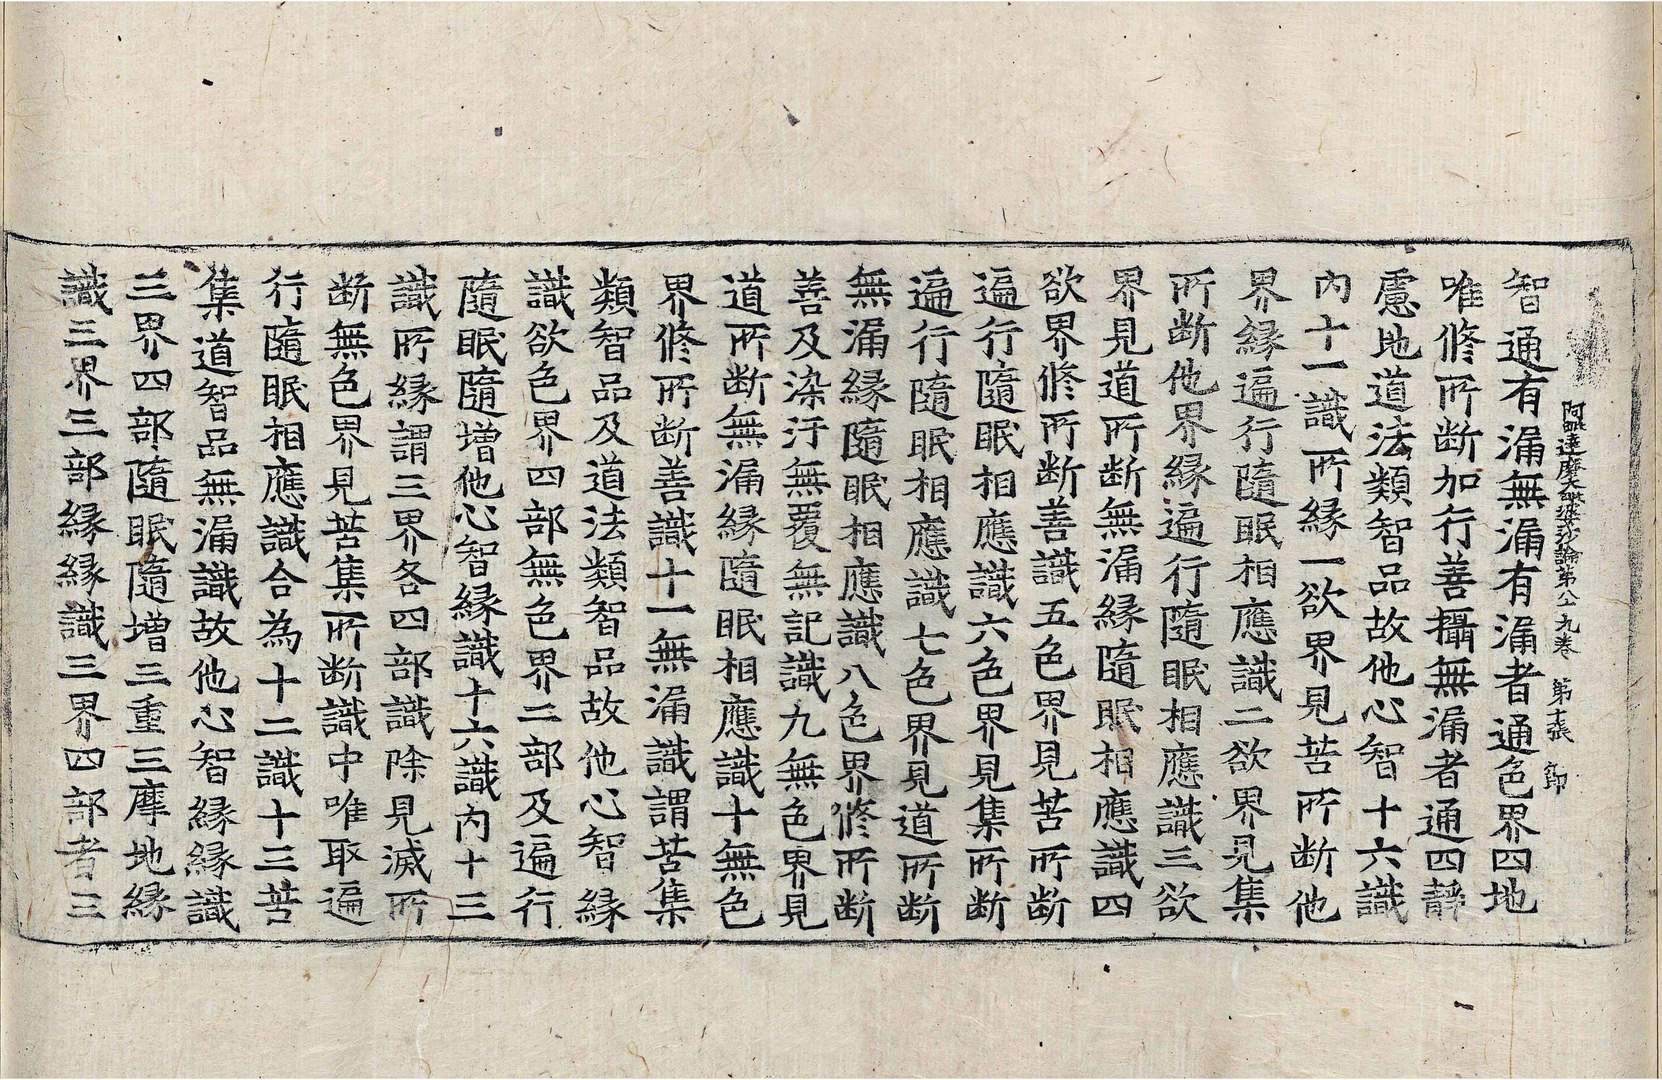 阿毗達磨大毗婆沙論第八九卷 第十張 節
智通有漏無漏有漏者通色界四地
唯修所断加行善攝無漏者通四靜
慮地道法類智品故他心智十六識
內十一識所緣一欲界見苦所断他
界緣遍行隨眠相應識二欲界見集
所断他界緣遍行隨眠相應識三欲
界見道所断無漏緣隨眠相應識四
欲界修所断善識五色界見苦所断
遍行隨眠相應識六色界見集所断
遍行隨眠相應識七色界見道所断
無漏緣隨眠相應識八色界修所断
善及染汙無覆無記識九無色界見
道所断無漏緣隨眠相應識十無色
界修所断善識十一無漏識謂苦集
類智品及道法類智品故他心智緣
識欲色界四部無色界二部及遍行
隨眠隨增他心智緣識十六識內十三
識所緣謂三界各四部識除見滅所
断無色界見苦集所断識中唯取遍
行隨眠相應識合為十二識十三苦
集道智品無漏識故他心智緣緣識
三界四部隨眠隨增三重三摩地緣
識三界三部緣緣識三界四部者三